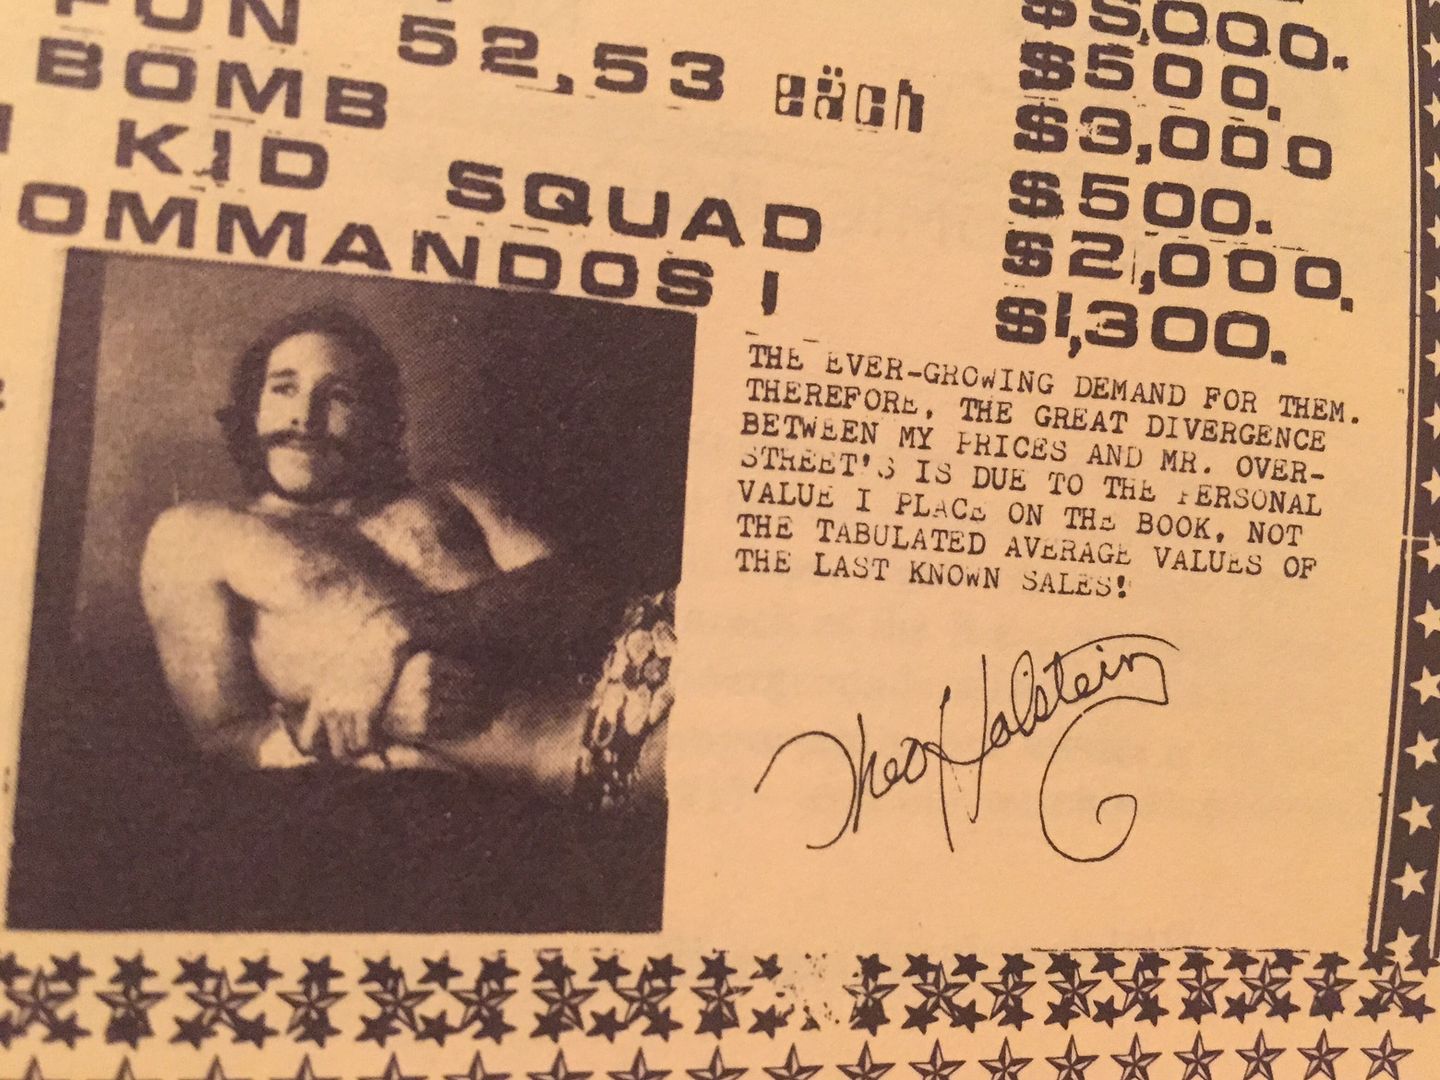 52,53 each
BOMB
KID SQUAD
OMMANDOS I
$5,000.
$500.
$3,000
$500.
$2,000.
$1,300.
THE EVER-GROWING DEMAND FOR THEM.
THEREFORE, THE GREAT DIVERGENCE
BETWEEN MY PRICES AND MR. OVER-
STREET'S IS DUE TO THE PERSONAL
VALUE I PLACE ON THE BOOK, NOT
THE TABULATED AVERAGE VALUES OF
THE LAST KNOWN SALES!
Theo Holstein